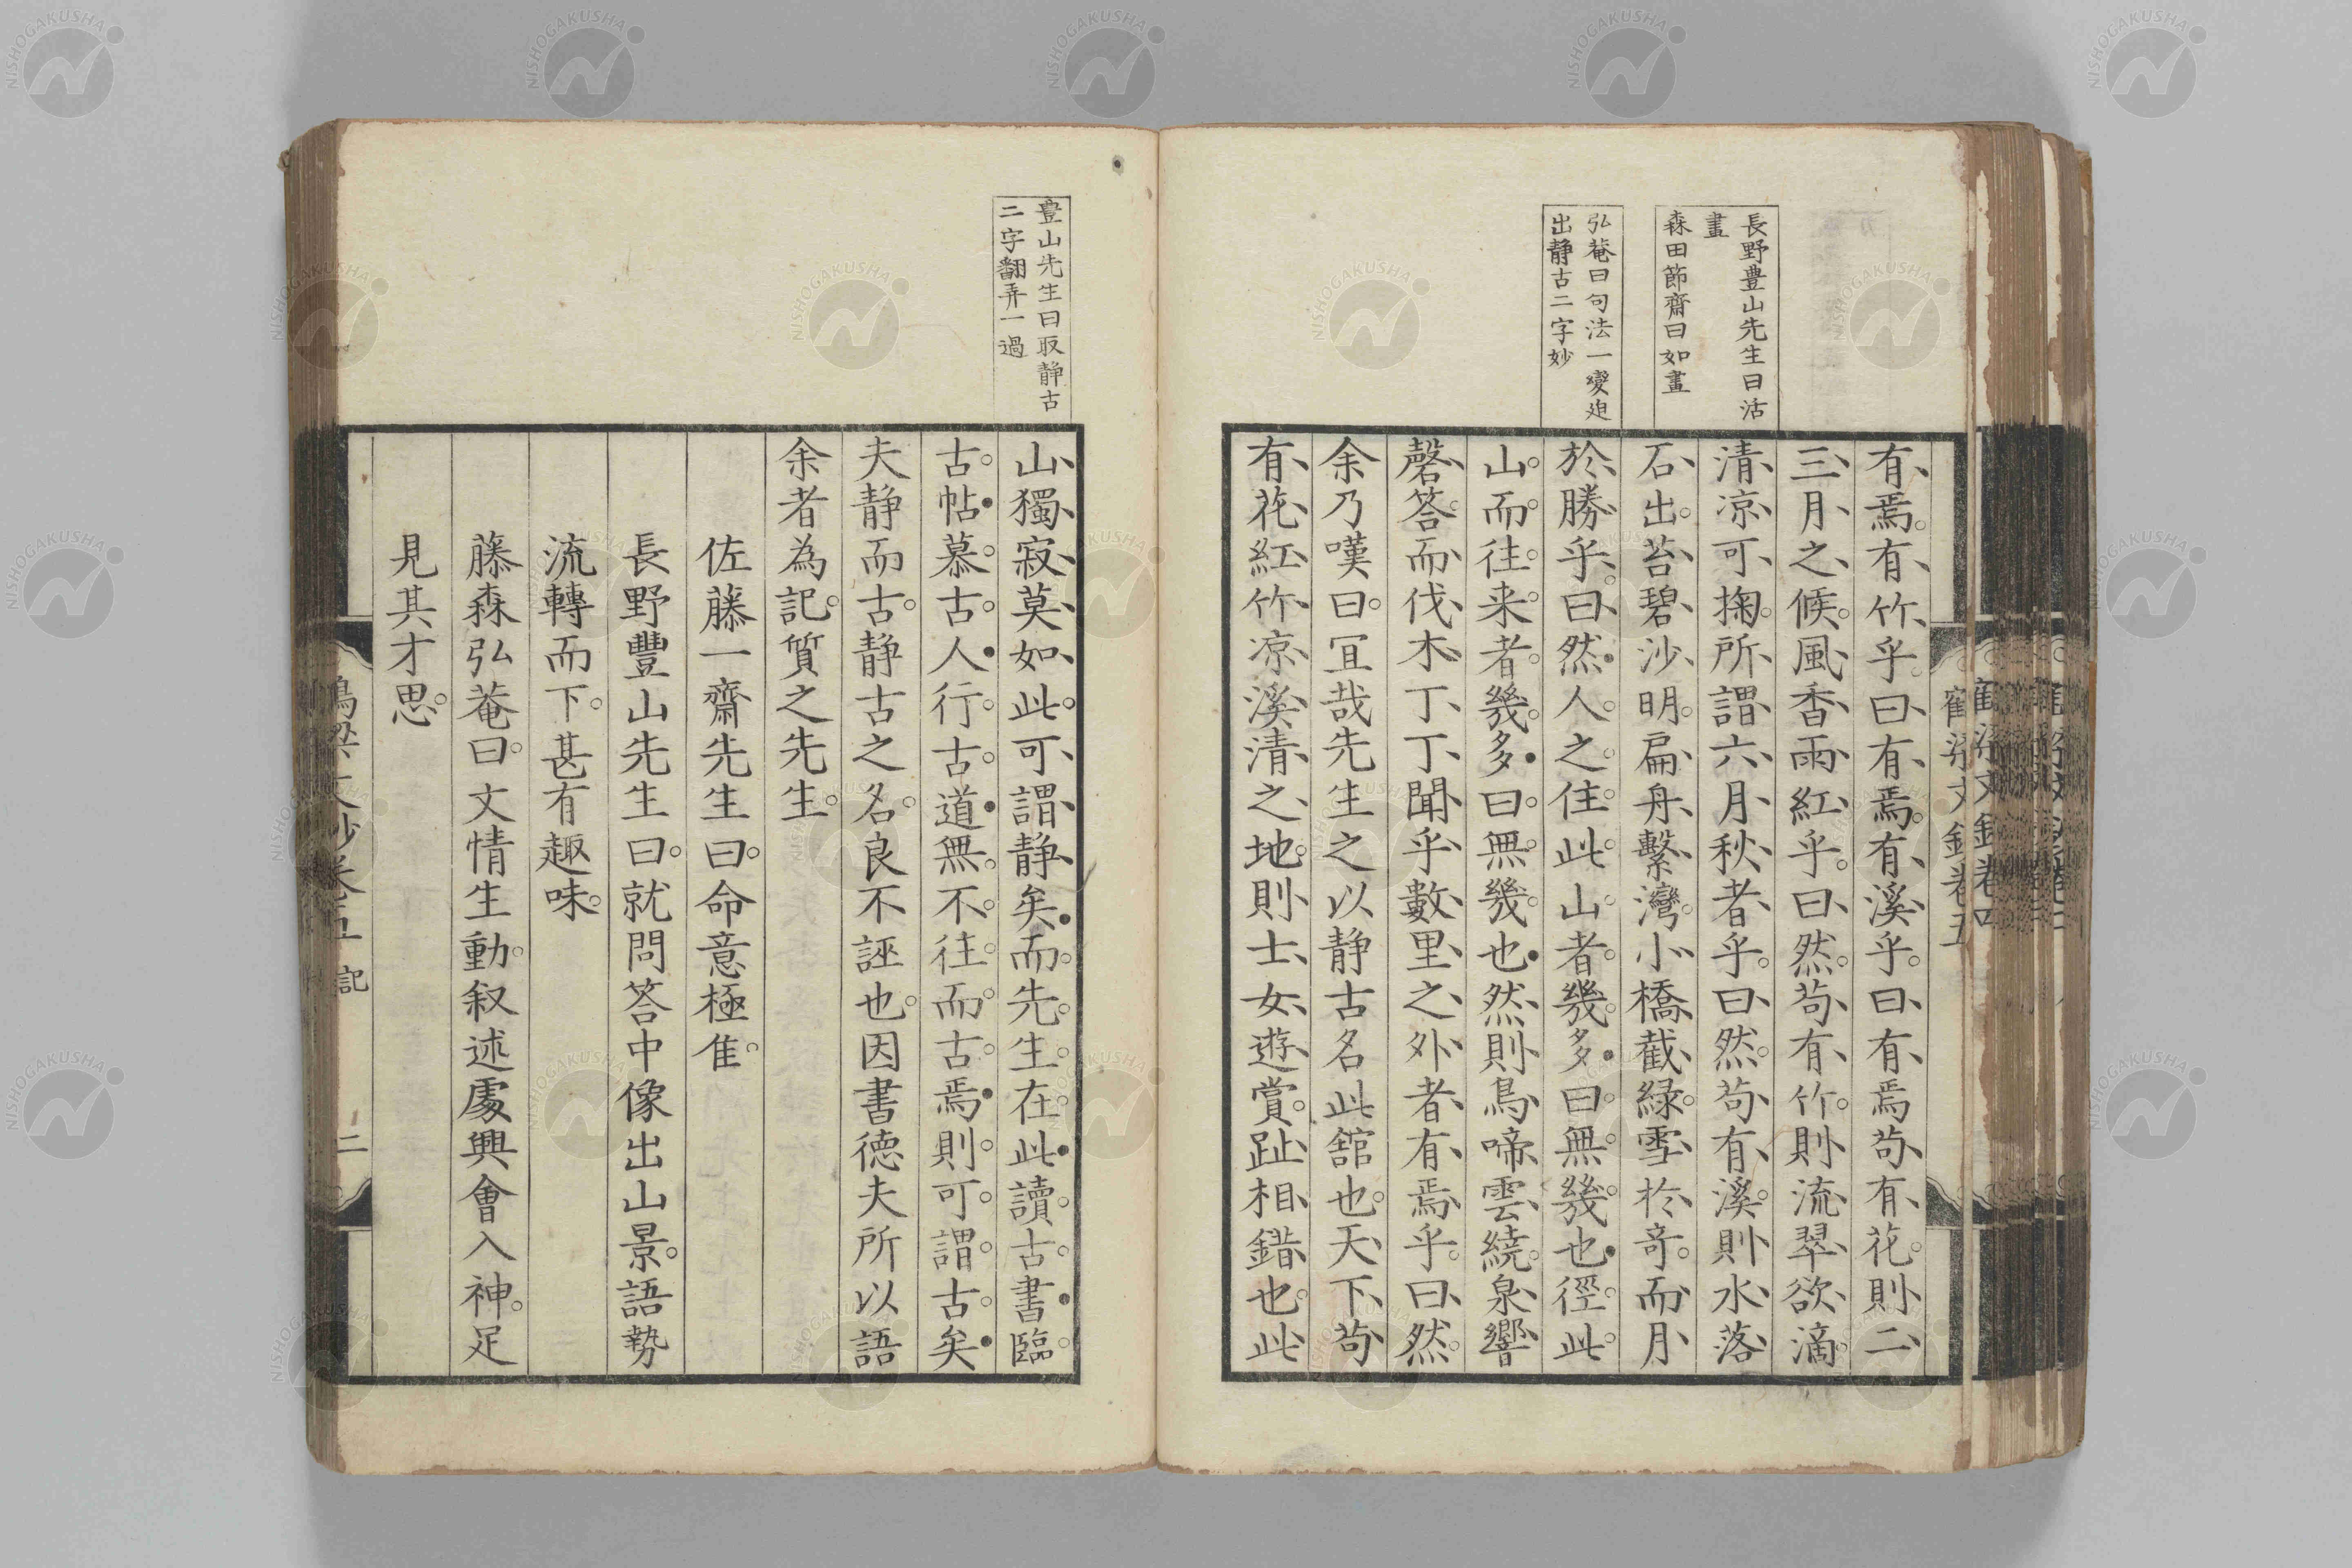 長野豊山先生曰活
畫
森田節齋曰如畫
弘菴曰句法一變迫
出静古二字妙
有焉。有竹乎。曰有焉。有溪乎。曰有焉苟有花。則二
三月之候。風香雨紅乎。曰然。苟有竹。則流翠欲滴
清凉可掬。所謂六月秋者乎。曰然。苟有溪。則水落
石出。苔碧沙明。扁舟繫灣。小橋截緑。雪於奇。而月
於勝乎。曰然。人之住此山者幾多。曰無幾也。徑此
山而往来者幾多。曰無幾也。然則鳥啼雲繞。泉響
磬答。而伐木丁丁聞乎數里之外者有焉乎。曰然。
余乃嘆曰。冝哉先生之以静古名此舘也。天下苟
有花紅竹凉溪清之地。則士女遊賞。趾相錯也。此
豊山先生曰取静古
二字翻弄一過
山獨寂莫如此。可謂静矣。而先生在此。讀古書。臨
古帖。慕古人。行古道。無不往而古焉。則可謂古矣
夫静而古。静古之名。良不誣也。因書徳夫所以語
余者為記。質之先生。
佐藤一齋先生曰。命意極隹。
長野豐山先生曰。就問答中像出山景。語勢
流轉而下。甚有趣味。
藤森弘菴曰。文情生動。叙述處興會入神。足
見其才思。
記
二
NISHOGAKUSHA